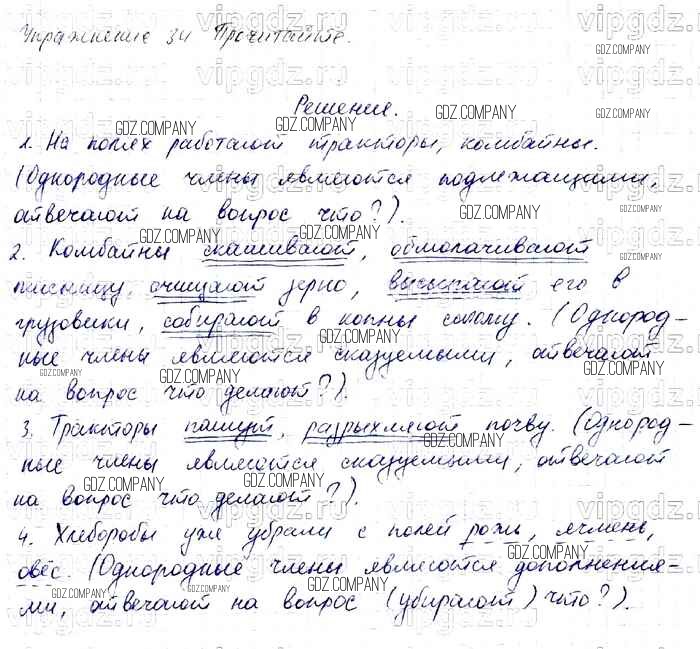 Упражнение 34 Прочитайте.
Решение.
1. На полях работают тракторы, комбайны.
(Однородные члены являются подлежащими,
отвечают на вопрос что?).
2. Комбайны скашивают, обмолачивают
пшеницу, очищают зерно, высыпают его в
грузовики, собирают в копны солому. (Однород-
ные члены являются сказуемыми, отвечают
на вопрос что делают?).
3. Тракторы пашут, разрыхляют почву. (Однород-
ные члены являются сказуемыми, отвечают
на вопрос что делают?).
4. Хлеборобы уже убрали с полей рожь, ячмень,
овёс. (Однородные члены являются дополнения-
ми, отвечают на вопрос (убирают) что?).